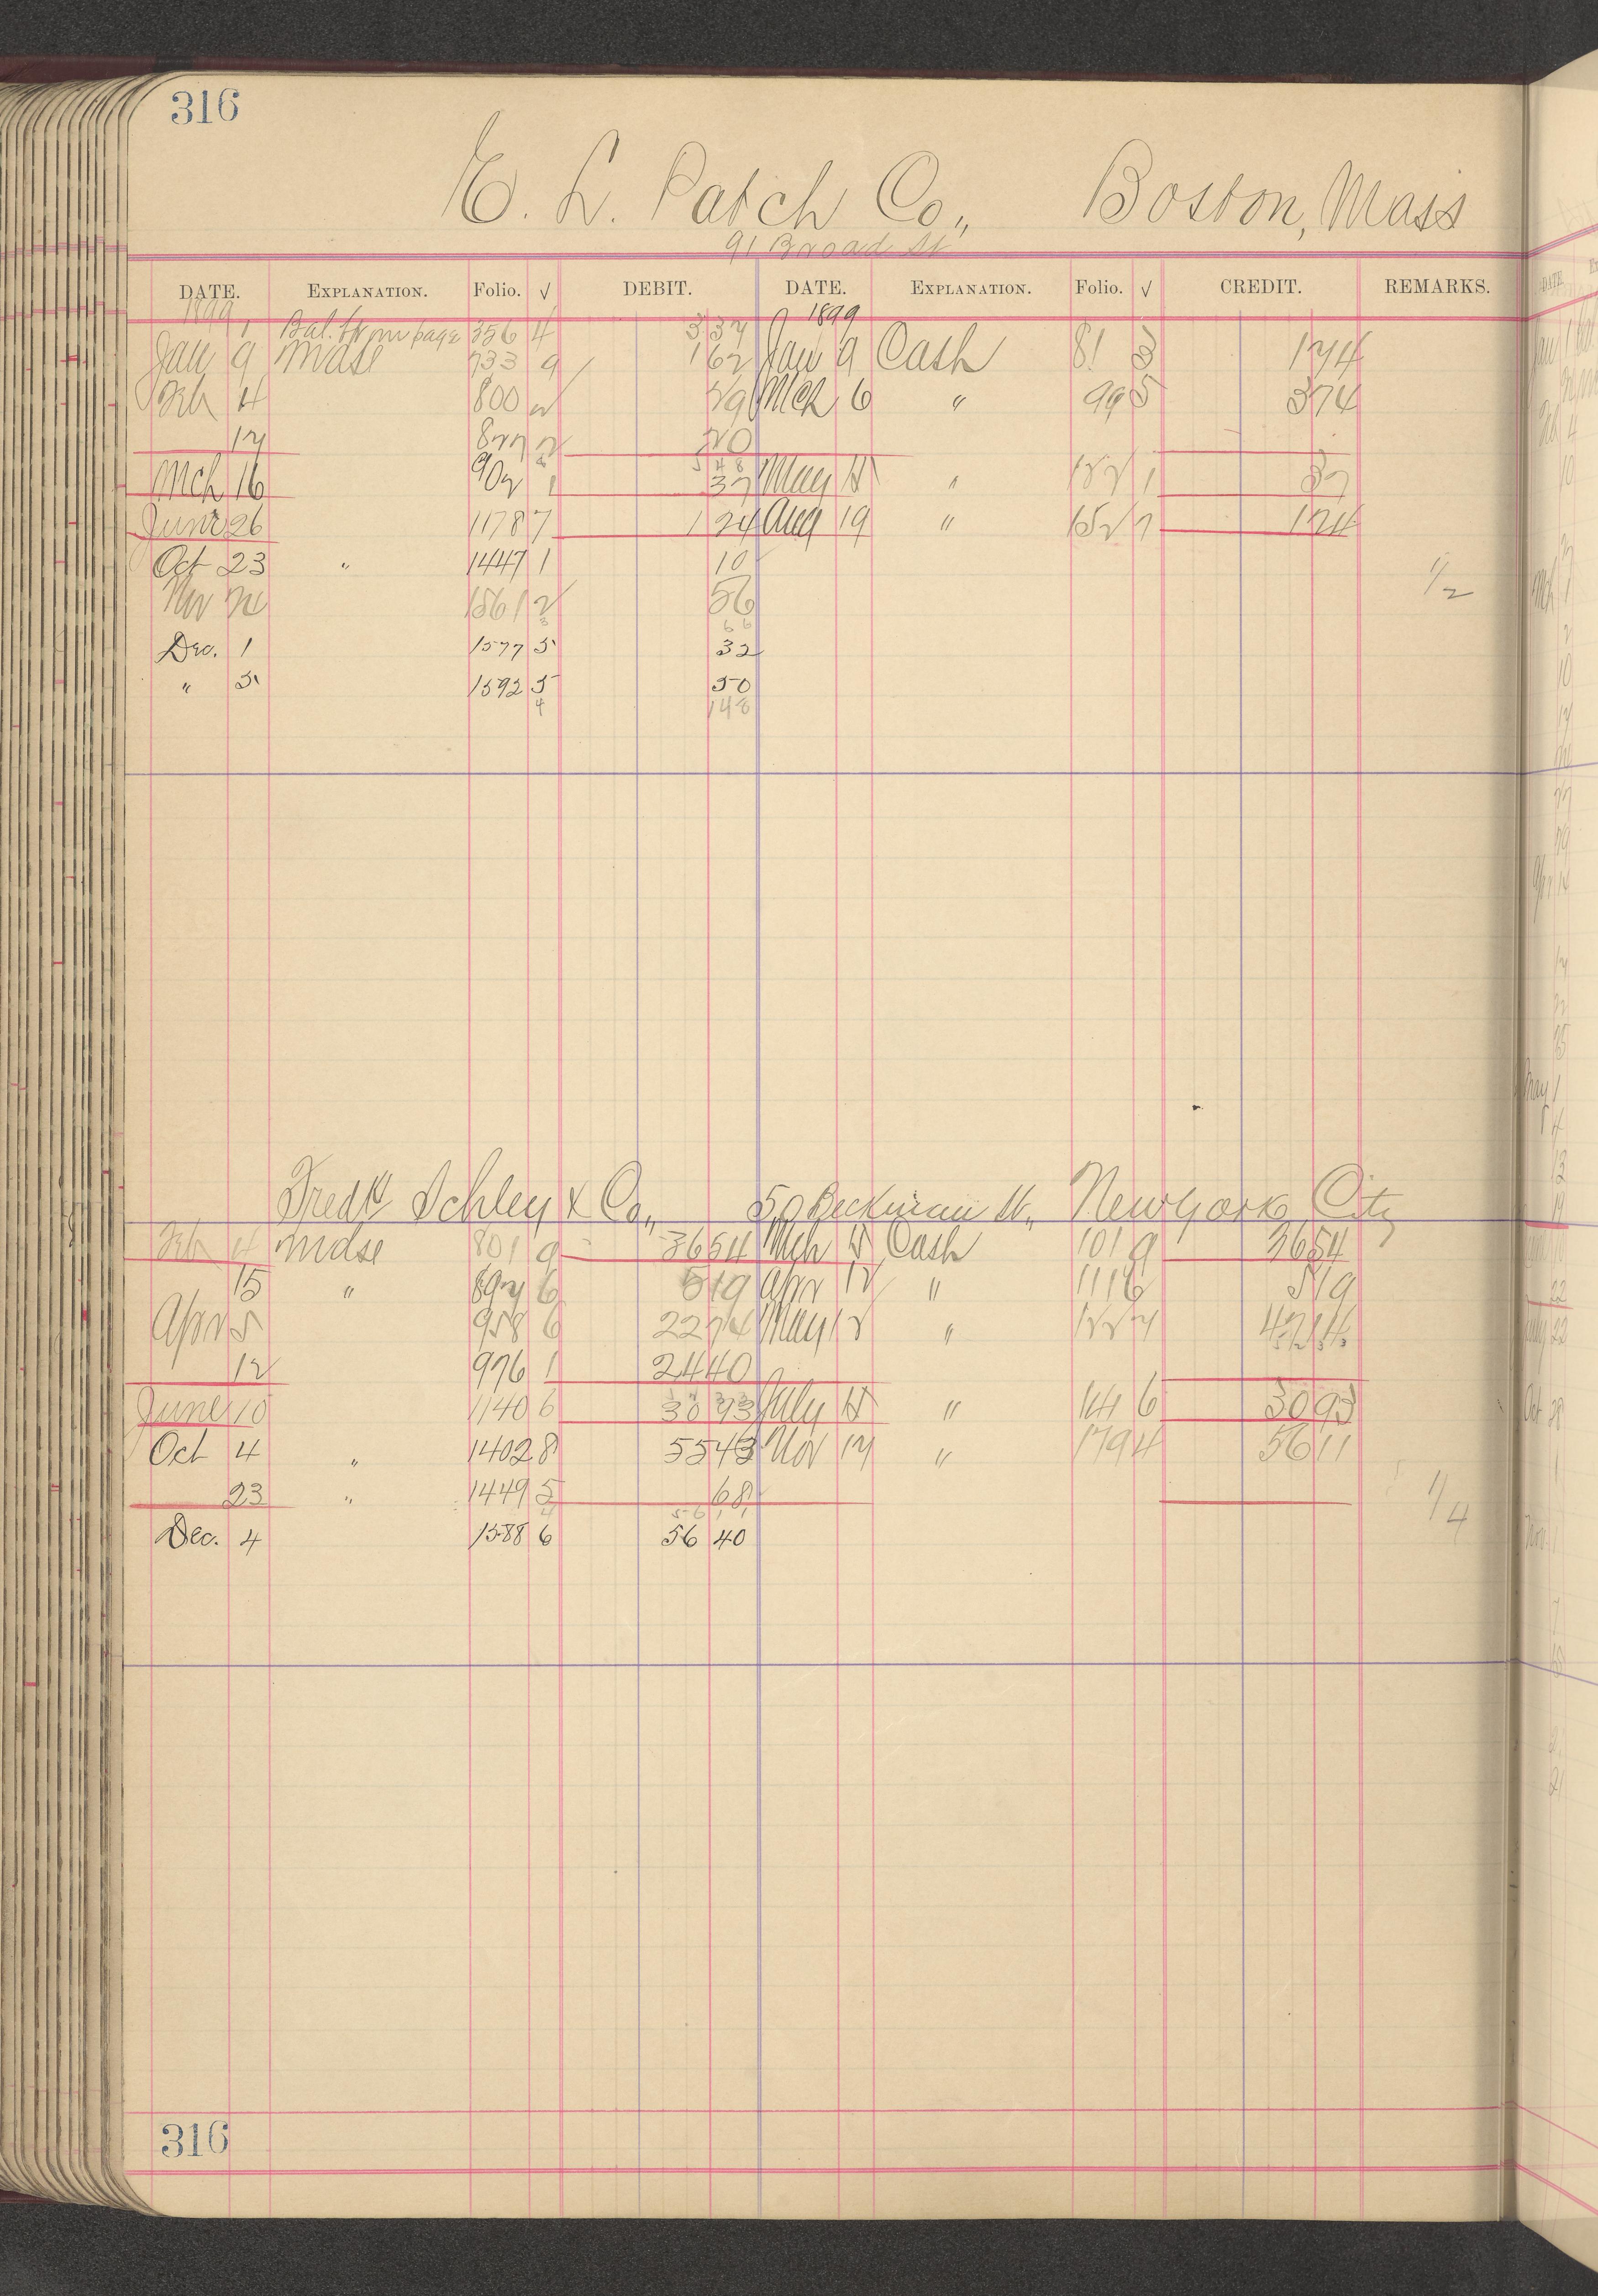 316
E. L. Patch Co., Boston, Mass
91 Broad St
DATE. EXPLANATION. Folio. √ DEBIT. DATE. EXPLANATION. Folio. √ CREDIT. REMARKS.
1899 1 Bal. from page 356 4 3 37 1899
Jan 9 Mdse 733 9 1 62 Jan 9 Cash 81 3 1 24
Feb 4 800 2 29 Mch 6 " 99 5 3 74
17 20
5 48
Mch 16 902 1 37 May 15 " 1 37
June 26 1178 7 1 24 Aug 19 " 1 24
Oct 23 " 1447 1 10
Nov 1561 2 56
66
1/2
Dec. 1 1577 5 32
" 5 1592 5 50
4 1 48
Fredk Schley & Co., 50 Beekman St., New York City
Feb 4 Mdse 801 9 36 54 Mch 15 Cash 101 9 36 54
15 " 6 5 19 Apr 12 " 111 6 5 19
Apr 5 958 6 22 74 May 12 " 47 14
12 976 1 24 40
June 10 1140 6 30 93 July 15 " 141 6 30 93
Oct 4 " 1402 8 55 43 Nov 14 " 179 4 56 11
23 " 1449 5 68
56 11
1/4
Dec. 4 1588 6 56 40
316